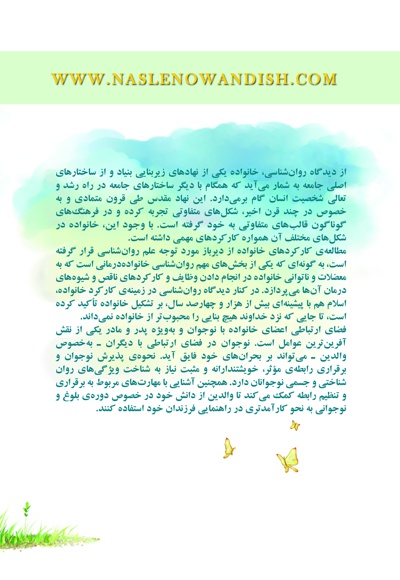 WWW.NASLENOWANDISH.COM
از دیدگاه روان‌شناسی، خانواده یکی از نهادهای زیربنایی بنیاد و از ساختارهای
اصلی جامعه به شمار می‌آید که همگام با دیگر ساختارهای جامعه در راه رشد و
تعالی شخصیت انسان گام برمی‌دارد. این نهاد مقدس طی قرون متمادی و به
خصوص در چند قرن اخیر، شکل‌های متفاوتی تجربه کرده و در فرهنگ‌های
گوناگون قالب‌های متفاوتی به خود گرفته است. با وجود این، خانواده در
شکل‌های مختلف آن همواره کارکردهای مهمی داشته است.
مطالعه‌ی کارکردهای خانواده از دیرباز مورد توجه علم روان‌شناسی قرار گرفته
است، به گونه‌ای که یکی از بخش‌های مهم روان‌شناسی خانواده‌درمانی است که به
معضلات و ناتوانی خانواده در انجام دادن وظایف و کارکردهای ناقص و شیوه‌های
درمان آن‌ها می‌پردازد. در کنار دیدگاه روان‌شناسی در زمینه‌ی کارکرد خانواده،
اسلام هم با پیشینه‌ای بیش از هزار و چهارصد سال، بر تشکیل خانواده تأکید کرده
است، تا جایی که نزد خداوند هیچ بنایی را محبوب‌تر از خانواده نمی‌داند.
فضای ارتباطی اعضای خانواده با نوجوان و به‌ویژه پدر و مادر یکی از نقش
آفرین‌ترین عوامل است. نوجوان در فضای ارتباطی با دیگران ـ به‌خصوص
والدین ـ می‌تواند بر بحران‌های خود فایق آید. نحوه‌ی پذیرش نوجوان و
برقراری رابطه‌ی مؤثر، خویشتندارانه و مثبت نیاز به شناخت ویژگی‌های روان
شناختی و جسمی نوجوانان دارد. همچنین آشنایی با مهارت‌های مربوط به برقراری
و تنظیم رابطه کمک می‌کند تا والدین از دانش خود در خصوص دوره‌ی بلوغ و
نوجوانی به نحو کارآمدتری در راهنمایی فرزندان خود استفاده کنند.